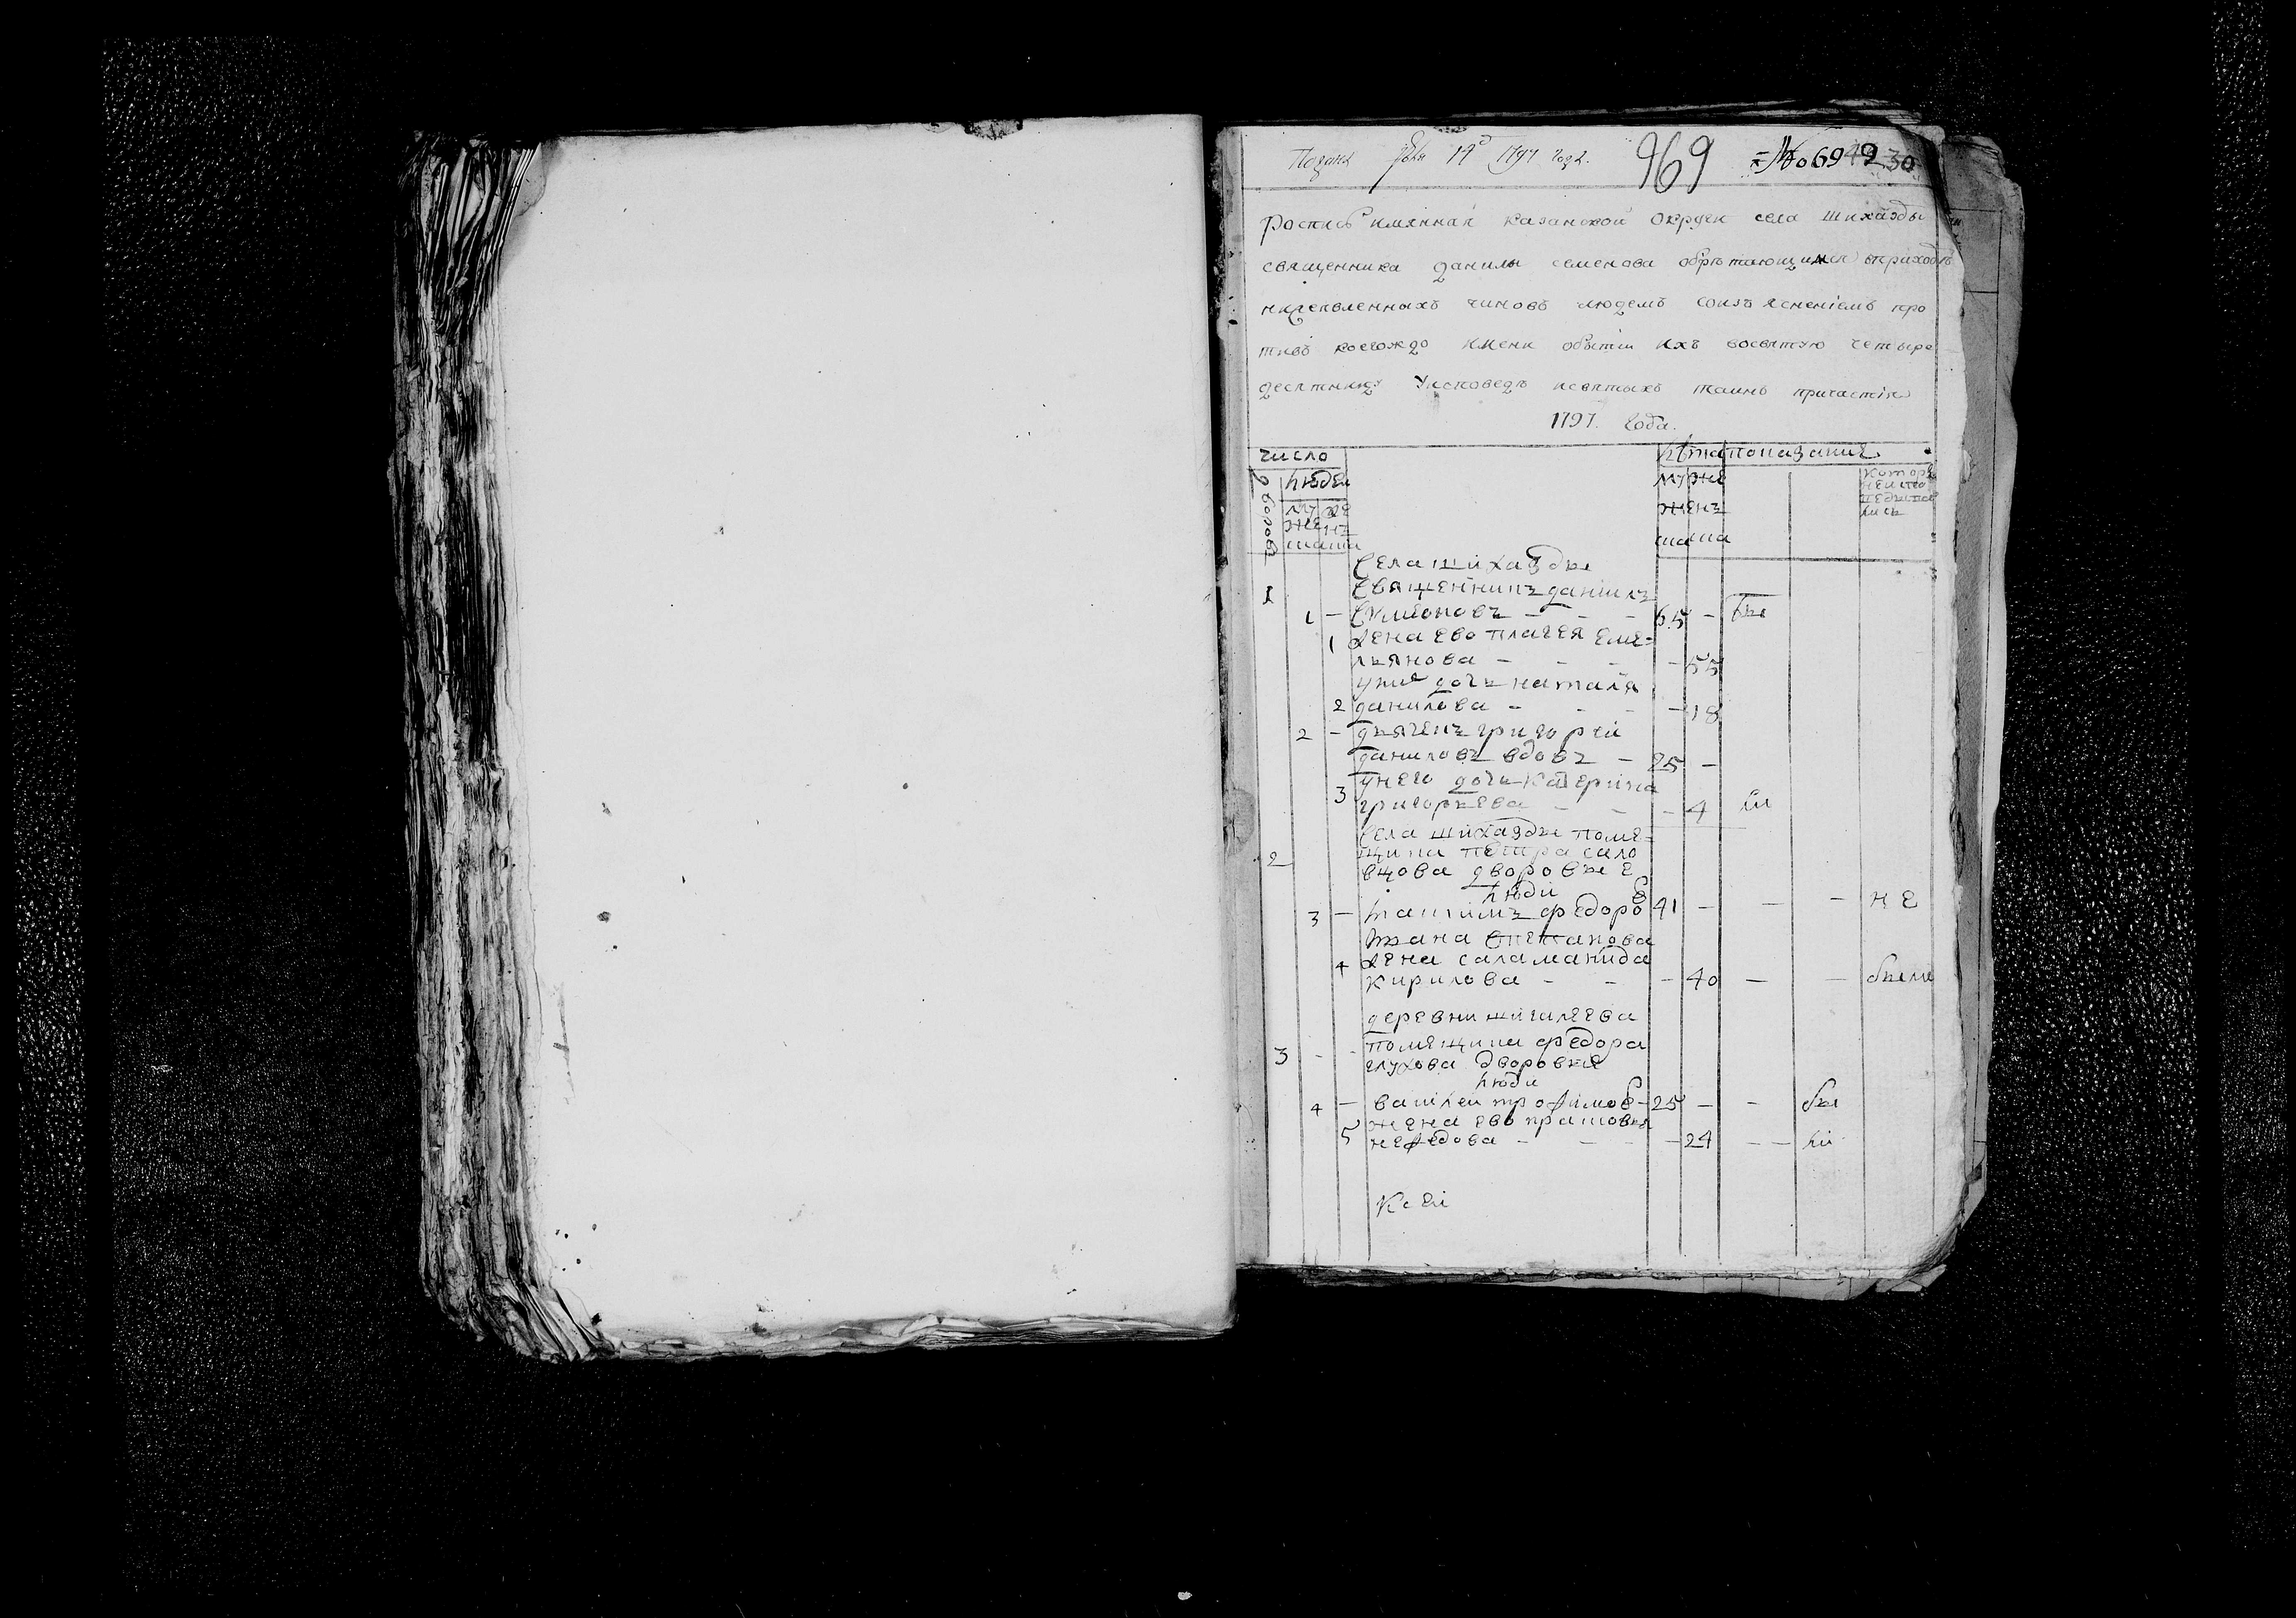 Подана 19 1797 года. 969 № 69
Роспись имянная казанской округи села шихазды
священника данилы семенова обретающимся вприходъ
нижеявленныхъ чиновъ людемъ соизъяснениемъ про
тивъ коегождо имени обытии ихъ восвятую четыре
десятницу уисповеди исвятыхъ таинъ причастия
1797. года.
число
лета показание
дворовъ
людеи
муже женъ которы
муже неиспо
женъ
ска ска
села шихазды
1 священникъ данiилъ
1 - симеоновъ - - - 65 - бы
1 жена ево плагея еме-
льянова - - - - 55
у них дочь наталя
2 данилова - - - - 18
2 - дьячекъ григореи
даниловъ вдовъ - 25 -
унего дочь катерина
3 григорьева - - - 4 ли
села шихазды поме-
2 щика петра сало
вцова дворовые
люди
3 - федоро 41 - - - не
4 жена саламанида
кирилова - - - 40 - - были
деревни шигалеева
помещика федора
3 - - глухова дворовые
люди
4 - василеи трофимов - 25 - - бы
жена ево прасковья
5 нефедова - - - - 24 - - ли